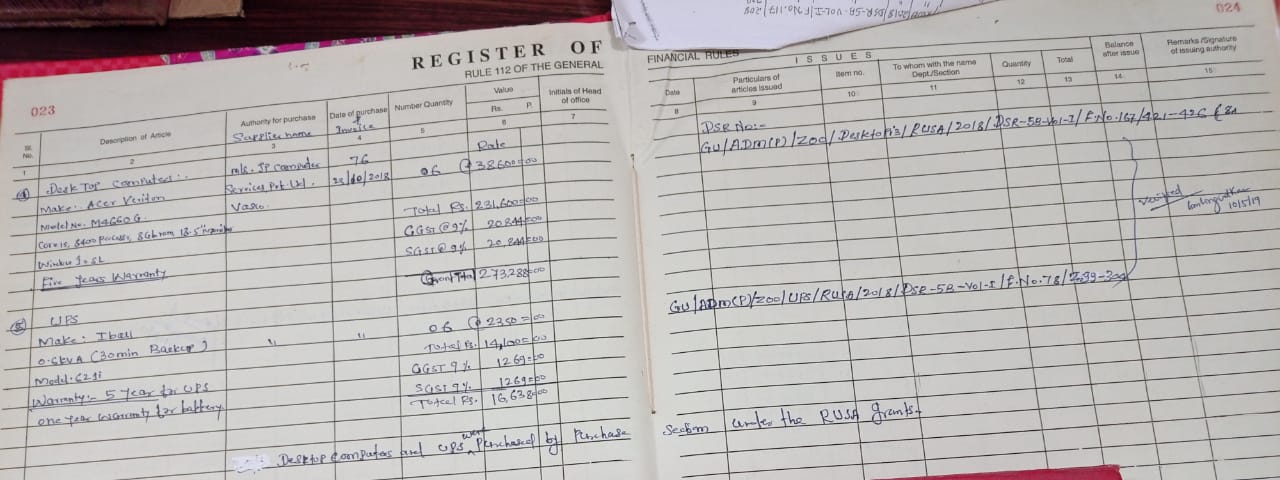 023
REGISTER OF
RULE 112 OF THE GENERAL
Sl. No.
Description of Article
Authority for purchase
Supplier name
Date of purchase
Invoice
Number Quantity
Value
Rs. P.
Initials of Head of office
1 2 3 4 5 6 7
Rate
Desk Top Computers:-
M/s. JP Computer
76
06 @ 38600=00
Make:- Acer Veriton
Services Pvt. Ltd.
23/10/2018
Model No. M4660G
Vasco.
Total Rs. 231,600=00
Core i5, 8400 Processor, 8Gb ram, 18.5"
CGST @ 9% 20844=00
SGST @ 9% 20,844=00
Five Years Warranty
Grand Total 273,288=00
UPS
Make: Iball
" "
06 @ 2350=00
0.6kvA (30min Backup)
Total Rs. 14,100=00
Model-621i
CGST 9% 1269=00
Warranty:- 5 Year for UPS
SGST 9% 1269=00
one year warranty for battery
Total Rs. 16,638=00
Desktop Computers and UPS were Purchased by Purchase
024
FINANCIAL RULES
ISSUES
Date
Particulars of articles issued
Item no.
To whom with the name Dept./Section
Quantity
Total
Balance after issue
Remarks /Signature of issuing authority
8 9 10 11 12 13 14 15
DSR No:-
GU/ADM(P)/ZOO/Desktop's/RUSA/2018/DSR-5B-Vol-I/F.No.167/421-426
Verified
10/5/19
GU/ADM(P)/ZOO/UPS/RUSA/2018/DSR-5B-Vol-I/F.No.78/299-304
Section under the RUSA grants.